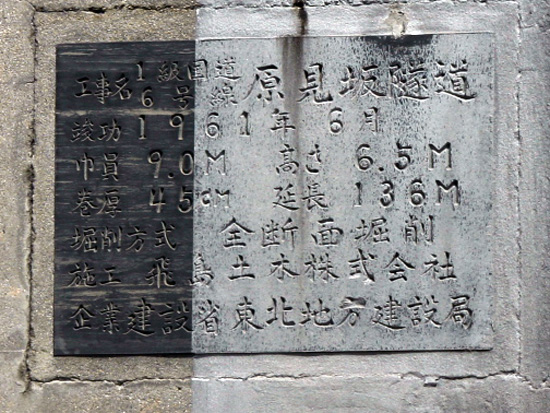 工事名 1級国道6号線 原見坂隧道
竣功 1961年6月
巾員 9.0M 高さ 6.5M
巻厚 45cM 延長 136M
堀削方式 全断面堀削
施工 飛島土木株式会社
企業 建設省東北地方建設局